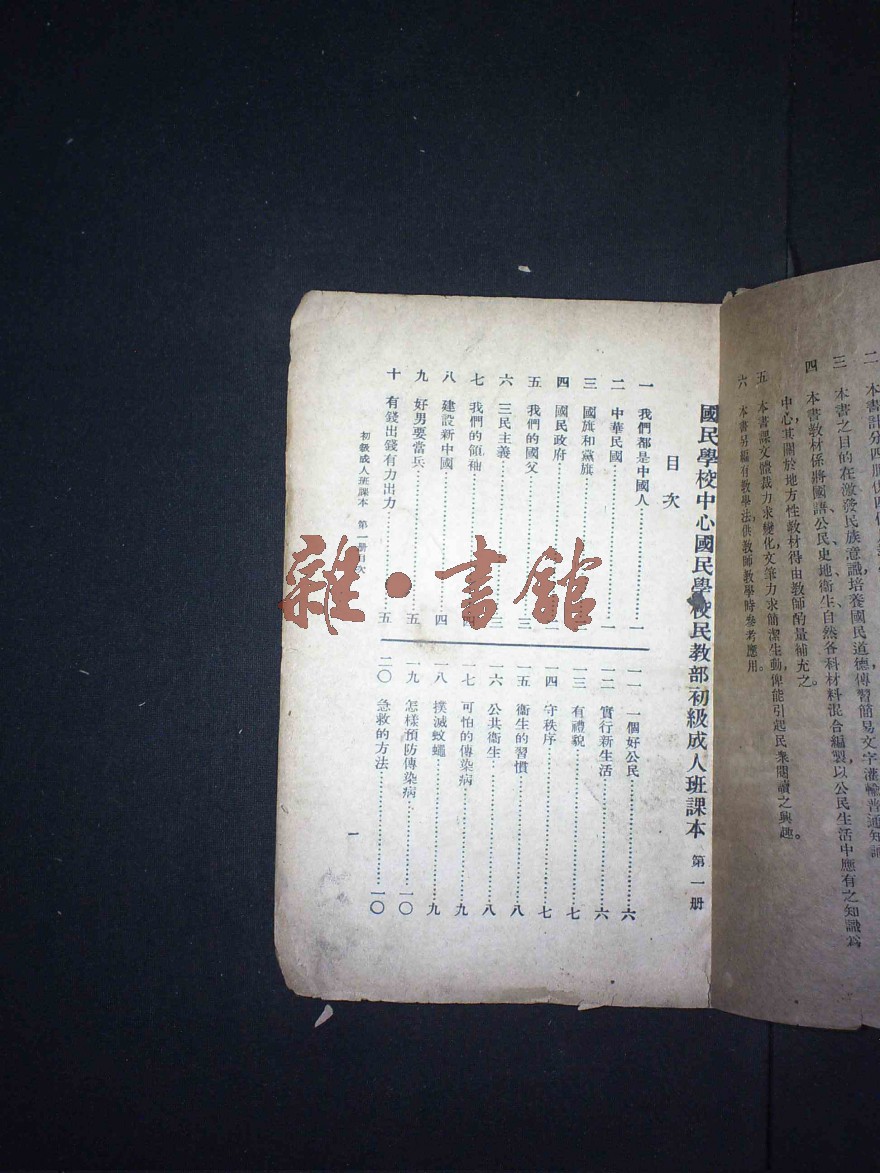 三 本書之目的在激發民族意識培養國民道德傳習簡易文字灌輸普通知識
四 本書教材係將國語公民史地衛生自然各科材料混合編製以公民生活中應有之知識為
中心,其關於地方性教材得由教師酌量補充之。
五 本書課文體裁力求變化文筆力求簡潔生動俾能引起民衆閱讀之興趣。
六 本書另編有教學法,供教師教學時參考應用。
國民學校中心國民學校民教部初級成人班課本 第一册
目次
一 我們都是中國人 一
二 中華民國 一
三 國旗和黨旗
四 國民政府
五 我們的國父 三
六 三民主義 三
七 我們的領袖 四
八 建設新中國 四
九 好男要當兵 五
十 有錢出錢有力出力 五
一一 一個好公民 六
一二 實行新生活 六
一三 有禮貌 七
一四 守秩序 七
一五 衞生的習慣 八
一六 公共衞生 八
一七 可怕的傳染病 九
一八 撲滅蚊蠅 九
一九 怎樣預防傳染病 一〇
二〇 急救的方法 一〇
初級成人班課本 第一册目次
一
雜·書館